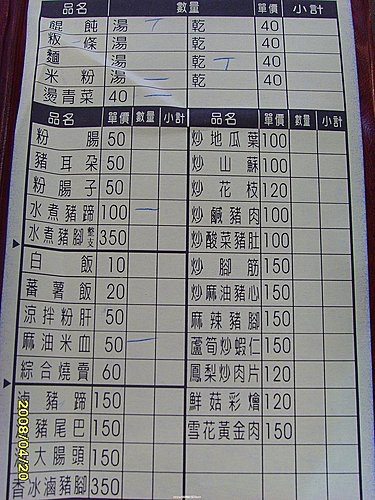 品名 數量 單價 小計
餛飩 湯 乾 40
粄條 湯 乾 40
麵 湯 乾 40
米粉 湯 乾 40
燙青菜 40
品名 單價 數量 小計
粉腸 50
豬耳朵 50
粉腸子 50
水煮豬蹄 100
水煮豬腳 整支 350
白飯 10
蕃薯飯 20
涼拌粉肝 50
麻油米血 50
綜合燒賣 60
滷豬蹄 150
豬尾巴 150
大腸頭 150
香冰滷豬腳 350
品名 單價 數量 小計
炒地瓜葉 100
炒山蘇 100
炒花枝 120
炒鹹豬肉 100
炒酸菜豬肚 100
炒腳筋 150
炒麻油豬心 150
麻辣豬腳 150
蘆筍炒蝦仁 150
鳳梨炒肉片 120
鮮菇彩燴 120
雪花黃金肉 150
2008/04/20